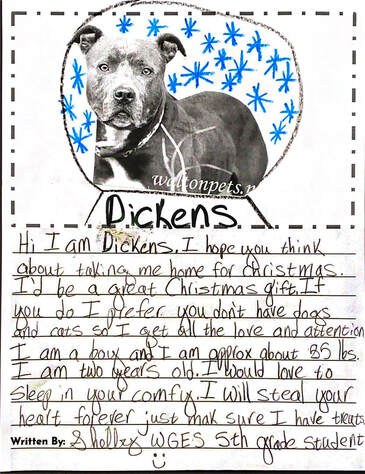 waltonpets.n
Dickens
Hi I am Dickens. I hope you think
about taking me home for christmas.
I'd be a great Christmas gift. If
you do I prefer you don't have dogs
and cats so I get all the love and attention
I am a boy and I am approx about 85 lbs.
I am two years old. I would love to
sleep in your comfy. I will steal your
heart forever just mak sure I have treats
Written By: WGES 5th grade student